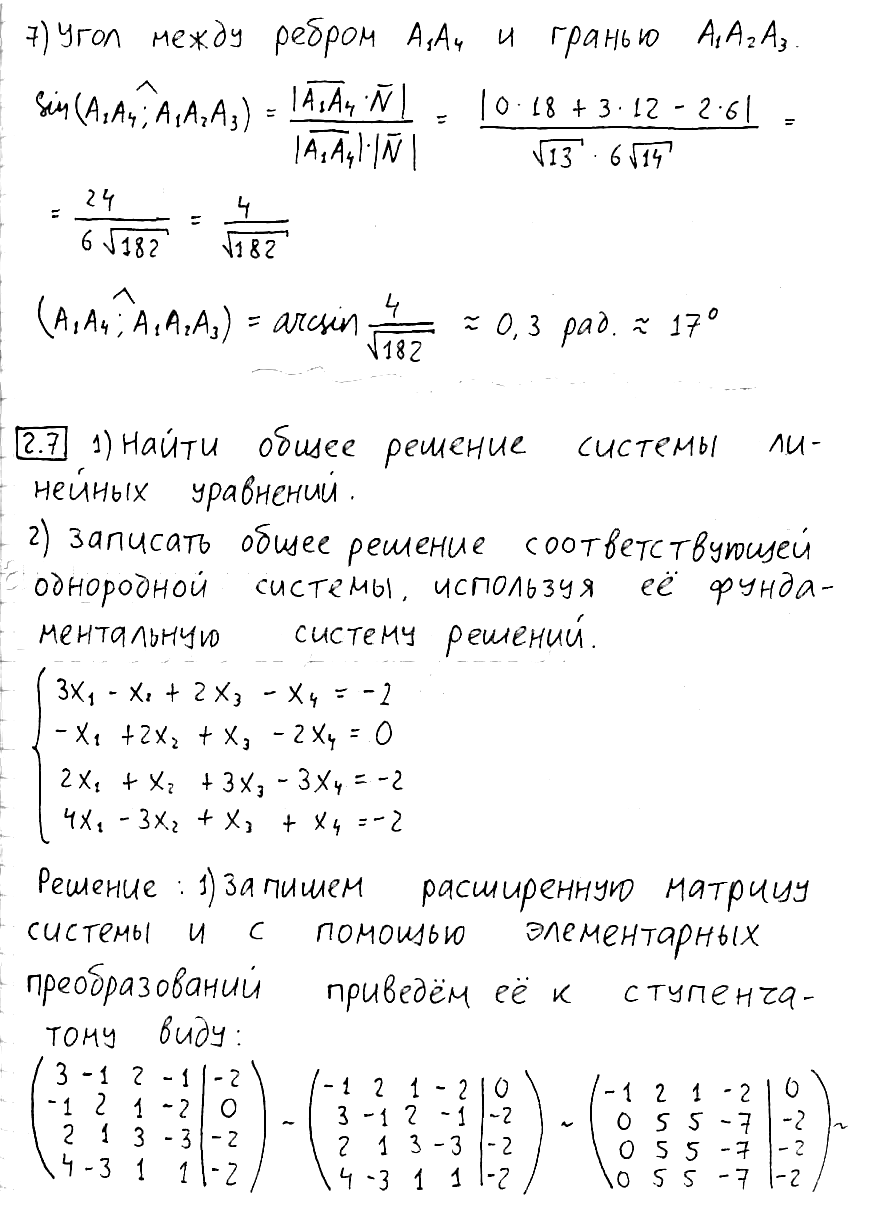 7) Угол между ребром A₁A₄ и гранью A₁A₂A₃.
sin(A₁A₄; A₁A₂A₃) = |A₁A₄ · N̄| / |A₁A₄|·|N̄| = |0·18 + 3·12 - 2·6| / √13 · 6√14 =
= 24 / 6√182 = 4 / √182
(A₁A₄; A₁A₂A₃) = arcsin 4/√182 ≈ 0,3 рад. ≈ 17°
2.7 1) Найти общее решение системы ли-
нейных уравнений.
2) Записать общее решение соответствующей
однородной системы, используя её фунда-
ментальную систему решений.
3x₁ - x₂ + 2x₃ - x₄ = -2
-x₁ + 2x₂ + x₃ - 2x₄ = 0
2x₁ + x₂ + 3x₃ - 3x₄ = -2
4x₁ - 3x₂ + x₃ + x₄ = -2
Решение: 1) Запишем расширенную матрицу
системы и с помощью элементарных
преобразований приведём её к ступенча-
тому виду:
3 -1 2 -1 | -2   -1 2 1 -2 | 0   -1 2 1 -2 | 0
-1 2 1 -2 | 0 ~ 3 -1 2 -1 | -2 ~ 0 5 5 -7 | -2 ~
2 1 3 -3 | -2   2 1 3 -3 | -2   0 5 5 -7 | -2
4 -3 1 1 | -2   4 -3 1 1 | -2   0 5 5 -7 | -2